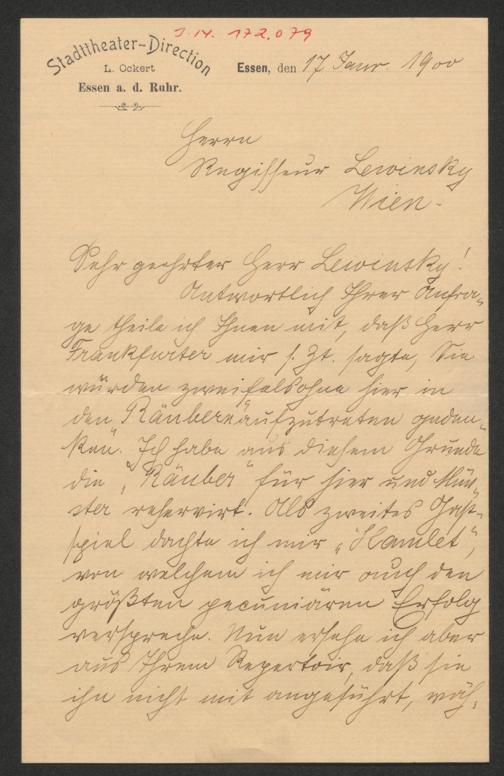 J. N. 172.079
Stadttheater-Direction
L. Ockert
Essen a. d. Ruhr.
Essen, den 17 Janr. 1900
Herrn
Regisseur Lewinsky
Wien.
Sehr geehrter Herr Lewinsky!
Antwortlich Ihrer Anfra-
ge theile ich Ihnen mit, daß Herr
Frankfurter mir s. Zt. sagte, Sie
würden zweifelsohne hier in
den „Räubern“ aufzutreten geden-
ken. Ich habe aus diesem Grunde
die „Räuber“ für hier und Mün-
ster reservirt. Als zweites Gast-
spiel dachte ich mir „Hamlet“,
von welchem ich mir auch den
größten pecuniären Erfolg
verspreche. Nun ersehe ich aber
aus Ihrem Repertoir, daß sie
ihn nicht mit angeführt, wäh-